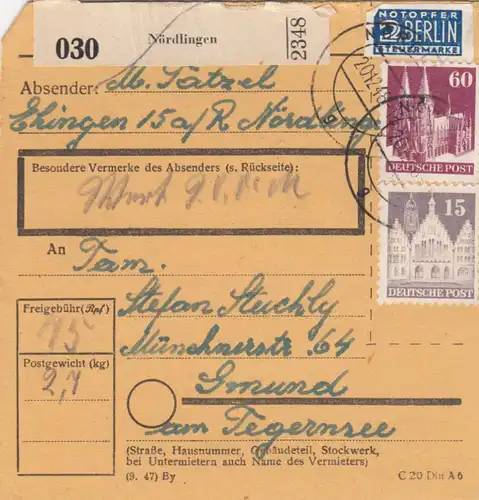 030
Nördlingen
2348
NOTOPFER
2 BERLIN
STEUERMARKE
Absender: M. Tatzel
Ehingen 15 a/R Nördlingen
60
DEUTSCHE POST
Besondere Vermerke des Absenders (s. Rückseite):
Wert
15
DEUTSCHE POST
An
Fam.
Stefan Stuchly
Münchnerstr. 64
Gmund
am Tegernsee
Freigebühr (Rpf)
75
Postgewicht (kg)
2,7
(Straße, Hausnummer, Gebäudeteil, Stockwerk,
bei Untermietern auch Name des Vermieters)
(9. 47) By
C 20 Din A 6